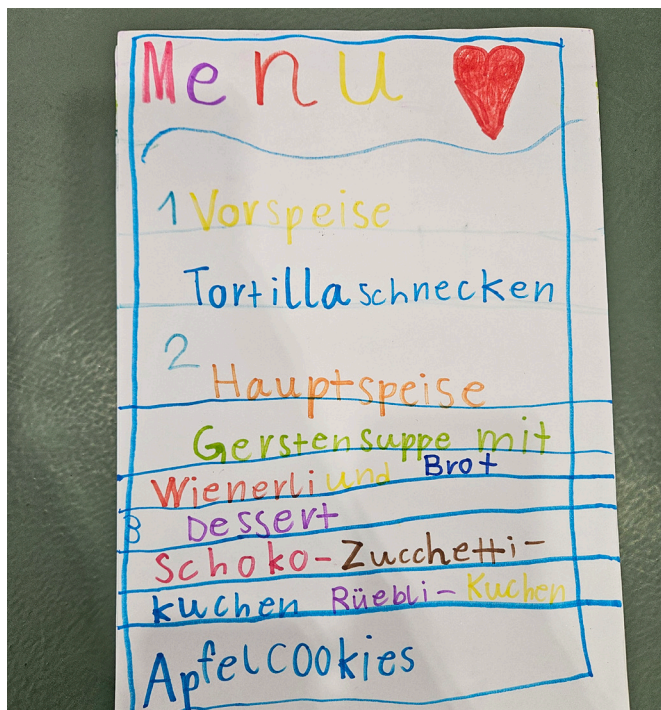 Menu
1 Vorspeise
Tortillaschnecken
2
Hauptspeise
Gerstensuppe mit
Wienerli und Brot
3 Dessert
Schoko-Zucchetti-
kuchen Rüebli-Kuchen
Apfelcookies